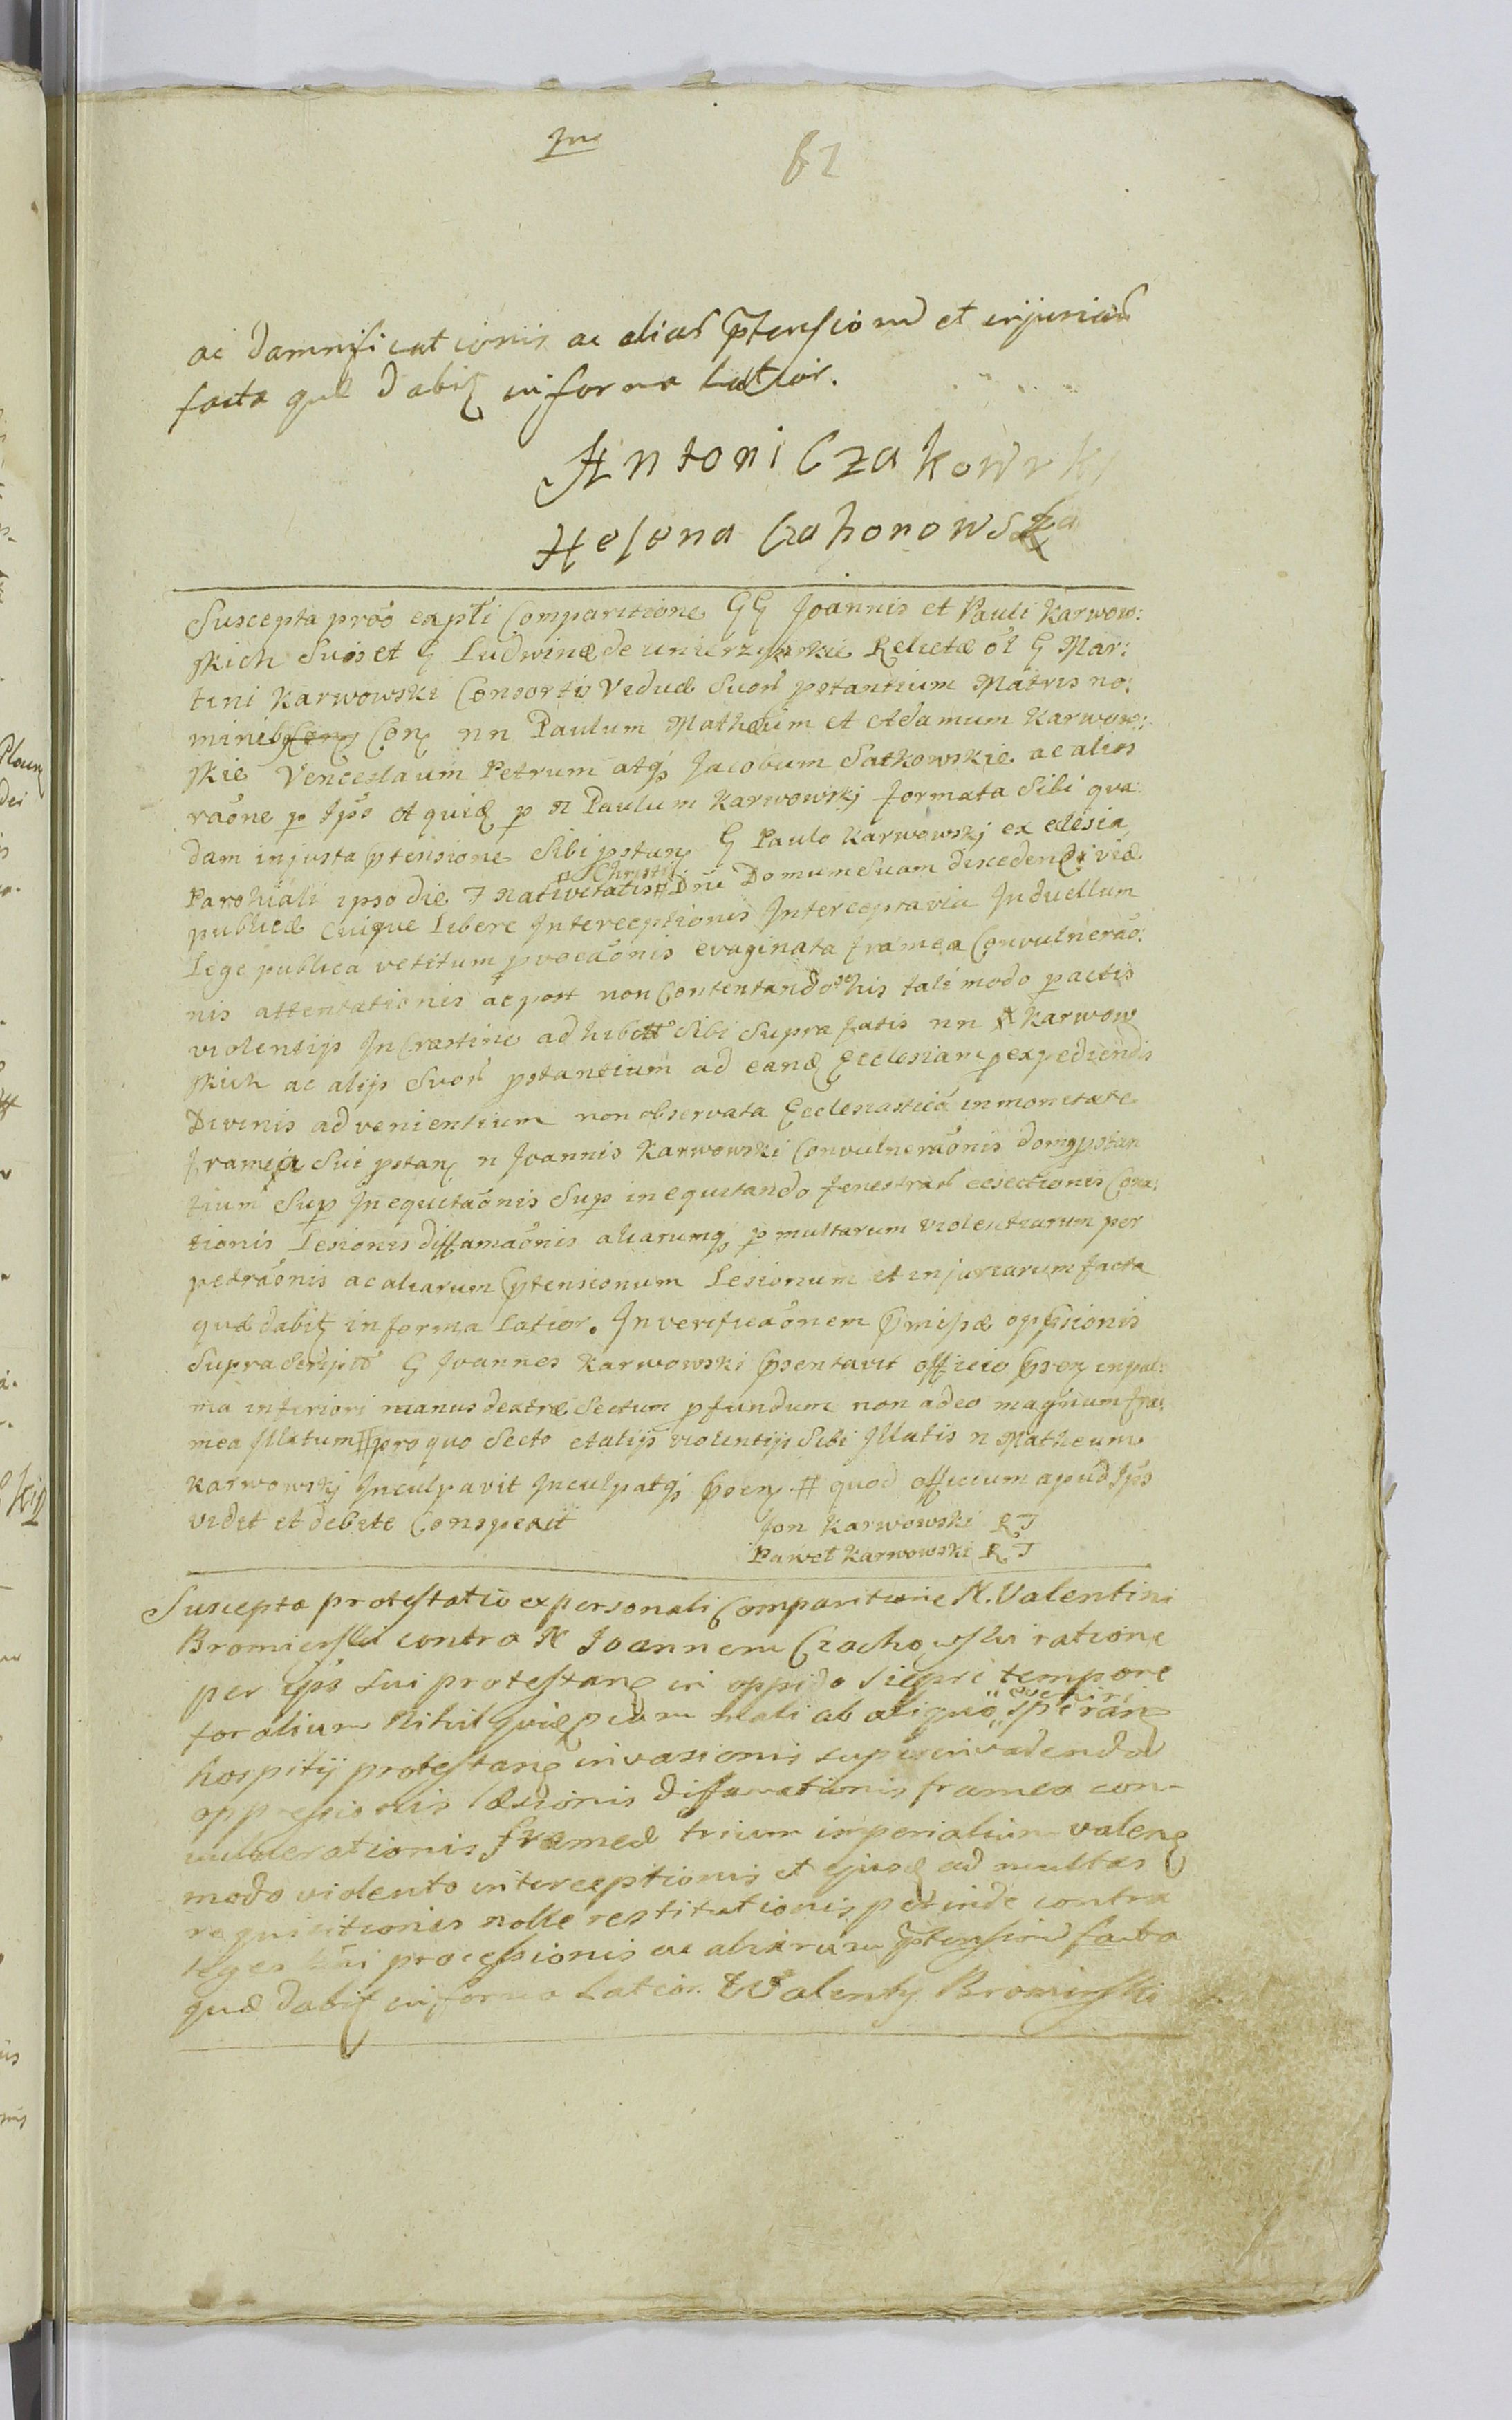 62
ac damnificationis ac aliar ptensionu et injuriar
facta quæ dabit in forma latior.
Antoni Czakowski
Helena Czahorowska
Suscepta proo expli Comparitione GG Joannis et Pauli Karwow:
skich Suo et G Ludwinæ de Relictæ ol G Mar:
tini Karwowski Consortis Viduæ Suor pstantium Matris no:
minibg Con nn Paulum Matheum et Adamum Karwow:
skie Venceslaum Petrum atq Jacobum Satkowskie ac alios
raone p Ips et quid p n Paulum Karwowskj formata Sibi qua:
dam injusta ptensione Sibi pstan G Paulo Karwowskj ex eclesia
Parohiali ipso die F nativitatis Christi Dni Domum Suam discedendi viæ
publicæ Cuique Libere Interceptionis Intercepta via In duellum
Lege publica vetitum pvocaonis evaginata framea Convulnerao:
nis attentationis ac post non Contentando se his tali modo pactis
violentijs In Crastino adhibitt Sibi Supra fatis nn Karwow
skich ac alijs Suor pstantium ad eand Ecclesiam p expediendis
Divinis advenientium non observata Ecclesiastica inmonitate
framea Sui pstan n Joannis Karwowski Convulneraonis domg pstan
tium Sup Inequitaonis Sup inequitando fenestrar exsectionis Cona:
tionis Lesionis diffamaonis aliarumq p multarum violentiarum per
petraonis ac aliarum ptensionum Lesionum et injuriarum facta
quæ dabit in forma Latior. In verificaonem pmissæ oppsionis
Supra Scriptt G Joannes Karwowski psentavit officio psen in pal:
ma inferiori manus dextræ Sectum pfundum non adeo magnum fra:
mea Illatum # pro quo Secto et alijs violentijs Sibi Illatis n Matheum
Karwowskj Inculpavit Inculpatq psen # quod officium apud Ips
vidit et debite Conspexit Jon Karwowski RJ
Paweł Karwowski RJ
Suscepta protestatio ex personali Comparitione N. Valentini
Bromierski contra N Joannem Czachowski ratione
per ips sui protestan in oppido Sierpc tempore
foralium Nihil quidpiam mali ab aliquo evenire speran
hospitij protestan invasionis super invadendo
oppressionis læsionis diffamationis framea con-
vulnerationis frameæ trium imperialium valen
modo violento interceptionis et ejusd ad multas
requisitionis nolle restitutionis perinde contra
leges processionis ac aliarum ptension facta
quæ dabit in forma latior. Walenty Bromirski